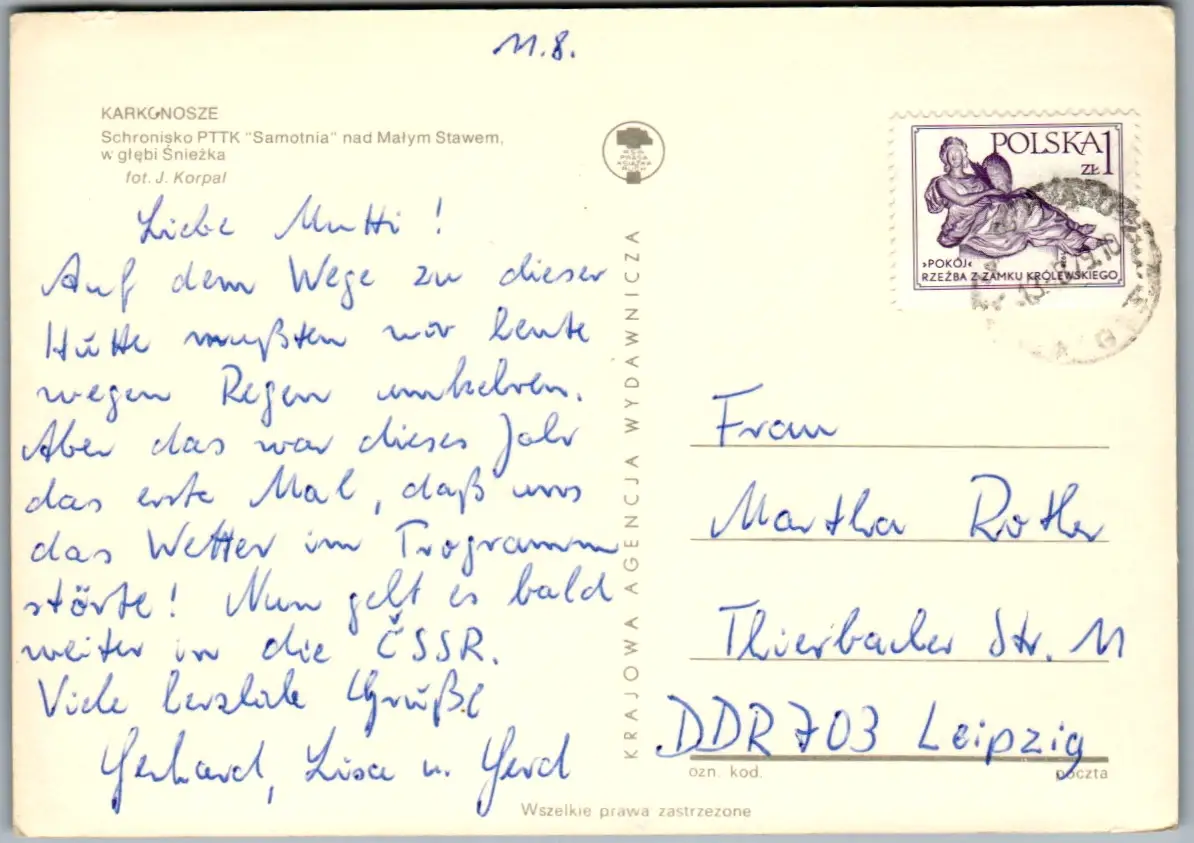 11.8.
KARKONOSZE
Schronisko PTTK "Samotnia" nad Małym Stawem,
w głębi Śnieżka
fot. J. Korpal
Liebe Mutti!
Auf dem Wege zu dieser
Hütte mußten wir heute
wegen Regen umkehren.
Aber das war dieses Jahr
das erste Mal, daß uns
das Wetter im Programm
störte! Nun geht es bald
weiter in die ČSSR.
Viele herzliche Grüße
Gerhard, Lisa u. Gerd
KRAJOWA AGENCJA WYDAWNICZA
RSW
PRASA
KSIĄŻKA
RUCH
POLSKA 1
ZŁ
›POKÓJ‹
RZEŹBA Z ZAMKU KRÓLEWSKIEGO
Frau
Martha Rother
Thierbacher Str. 11
DDR 703 Leipzig
ozn. kod. poczta
Wszelkie prawa zastrzezone